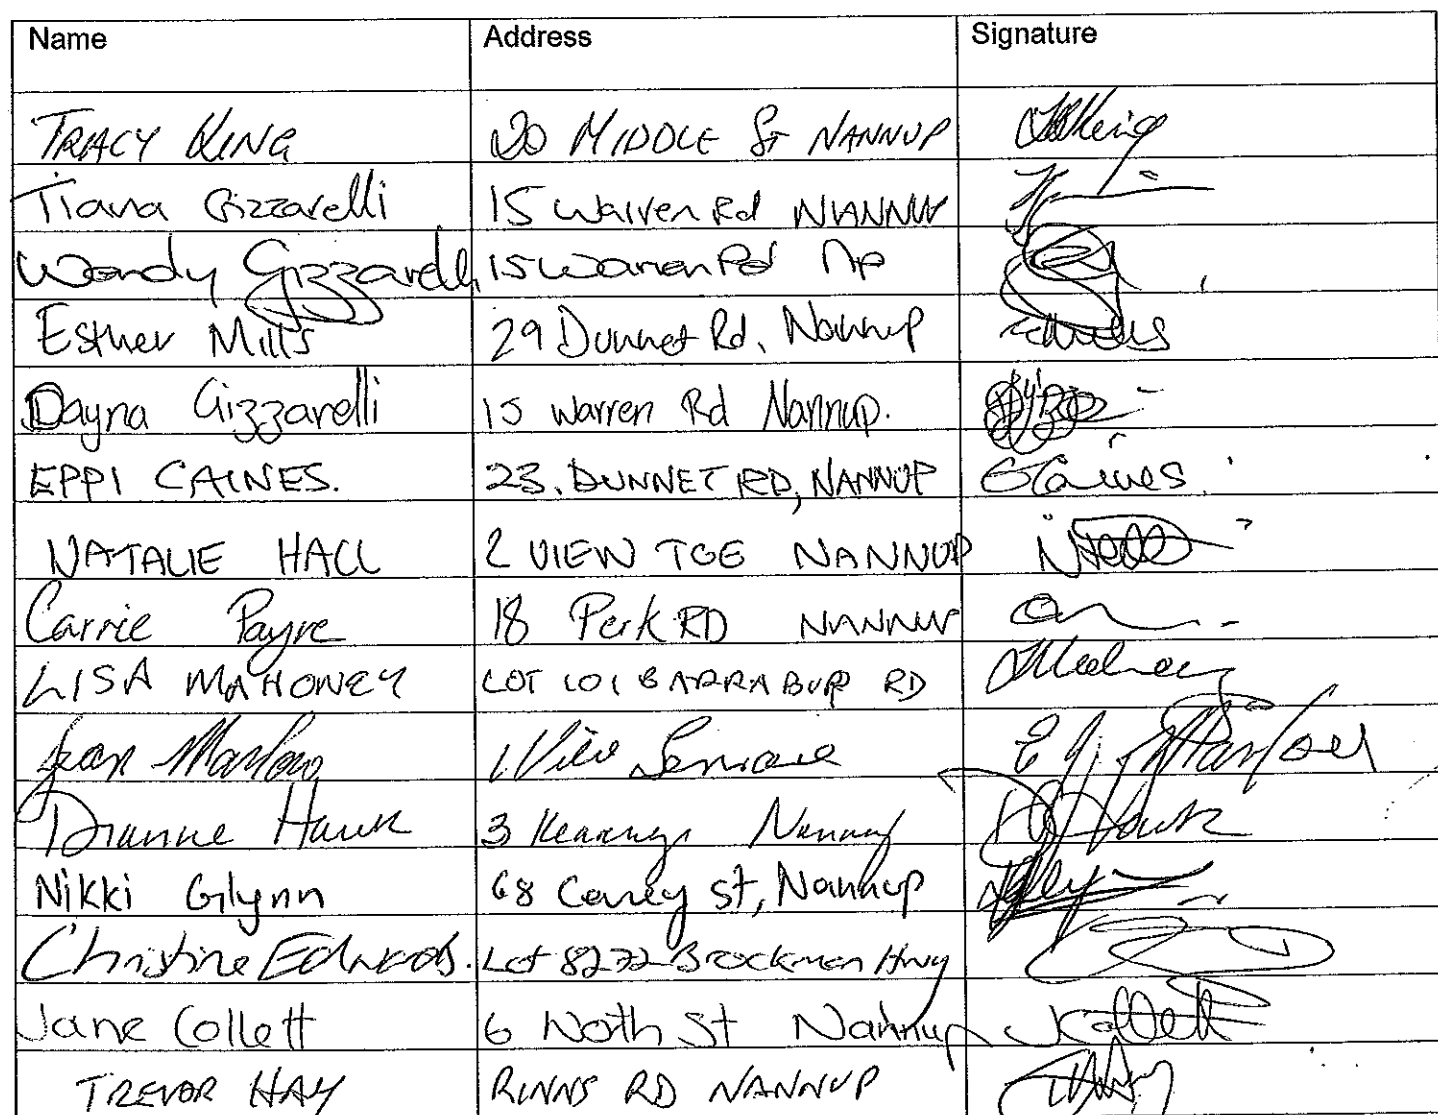 Name Address Signature
TRACY KING 20 MIDDLE St NANNUP TKing
Tiana Gizzarelli 15 Warren Rd NANNUP
Wendy Gizzarelli 15 Warren Rd Np
Esther Mills 29 Dunnet Rd, Nannup EMills
Dayna Gizzarelli 15 Warren Rd Nannup.
EPPI CAINES. 23. DUNNET RD, NANNUP ECaines.
NATALIE HALL 2 VIEW TCE NANNUP
Carrie Payne 18 Perk RD NANNUP
LISA MAHONEY LOT 101 BARRABUP RD LMahoney
Jean Marlow 1 View E J Marlow
Dianne Hawk 3 Nannup D Hawk
Nikki Glynn 68 Carey St, Nannup
Christine Edwards. Lot 8272 Brockman Hwy
Jane Collett 6 North St Nannup JCollett
TREVOR HAY RINNS RD NANNUP